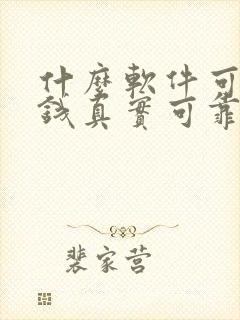 什麼軟件可
錢真實可靠
裴家营